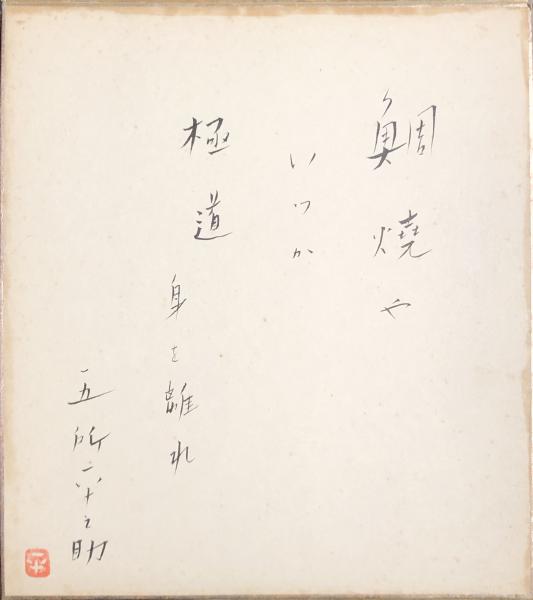 鯛燒や
いつか
極道
身を離れ
五所平之助